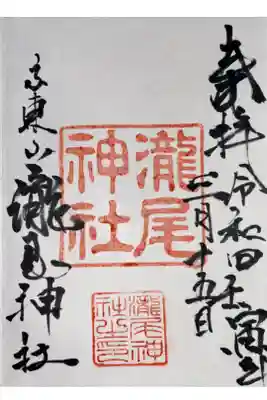 奉拝 令和四壬寅年
三月十五日
瀧尾
神社
瀧尾神
社之印
京東山 瀧尾神社